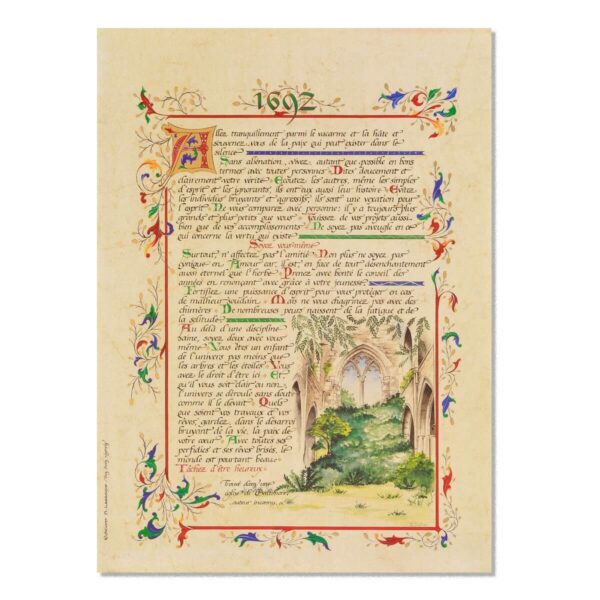 1692
Allez tranquillement parmi le vacarme et la hâte et
souvenez-vous de la paix qui peut exister dans le
silence
Sans aliénation, vivez autant que possible en bons
termes avec toutes personnes Dites doucement et
clairement votre vérité Écoutez les autres, même les simples
d'esprit et les ignorants, ils ont eux aussi leur histoire Évitez
les individus bruyants et agressifs, ils sont une vexation pour
l'esprit Ne vous comparez avec personne: il y a toujours plus
grands et plus petits que vous Jouissez de vos projets aussi
bien que de vos accomplissements Ne soyez pas aveugle en ce
qui concerne la vertu qui existe
Soyez vous-même
Surtout, n'affectez pas l'amitié Non plus ne soyez pas
cynique en Amour car, il est, en face de tout désenchantement
aussi éternel que l'herbe Prenez avec bonté le conseil des
années en renonçant avec grâce à votre jeunesse
Fortifiez une puissance d'esprit pour vous protéger en cas
de malheur soudain Mais ne vous chagrinez pas avec des
chimères De nombreuses peurs naissent de la fatigue et de
la solitude
Au delà d'une discipline
saine, soyez doux avec vous
même Vous êtes un enfant
de l'univers pas moins que
les arbres et les étoiles Vous
avez le droit d'être ici Et
qu'il vous soit clair ou non
l'univers se déroule sans doute
comme il le devait Quels
que soient vos travaux et vos
rêves, gardez, dans le désarroi
bruyant de la vie, la paix de
votre cœur Avec toutes ses
perfidies et ses rêves brisés, le
monde est pourtant beau
Tâchez d'être heureux
Trouvé dans une
église de Baltimore,
auteur inconnu